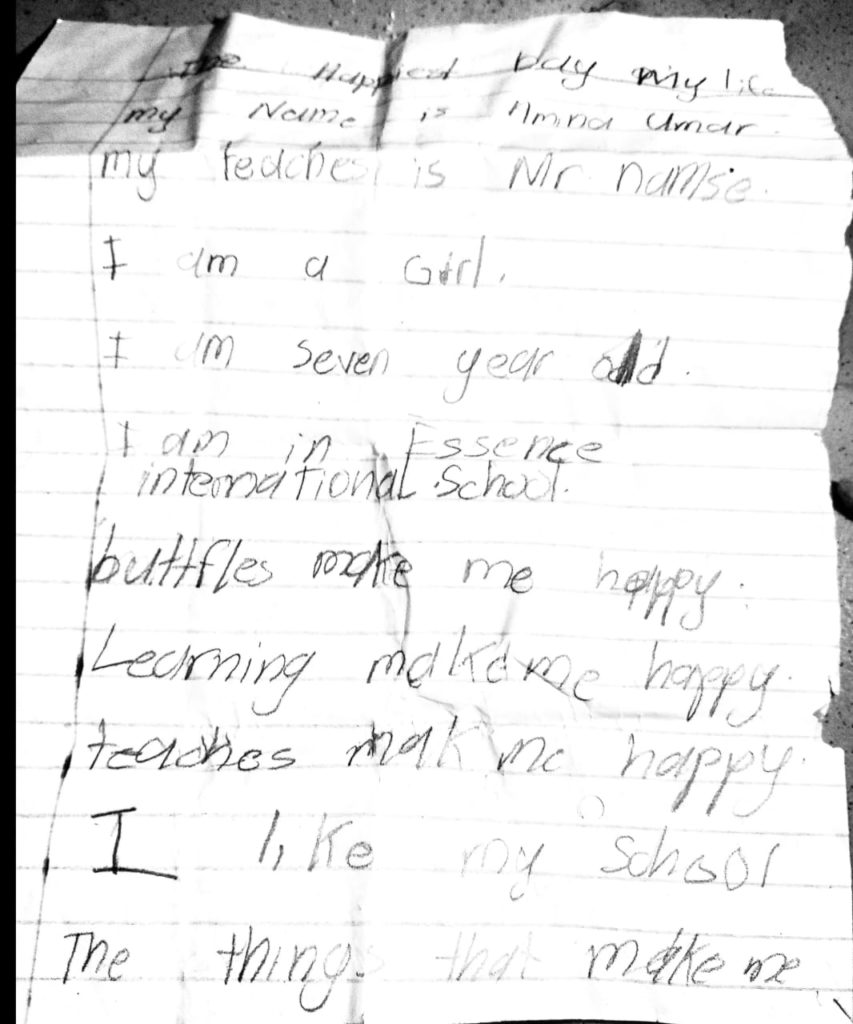 The Happied Day my life
my Name is Amina Umar.
my teaches is Mr namse.
I am a Girl.
I am seven year old.
I am in Essence
international School.
buttfles make me happy.
Learning make me happy.
teaches mak me happy.
I like my school
The things that make me